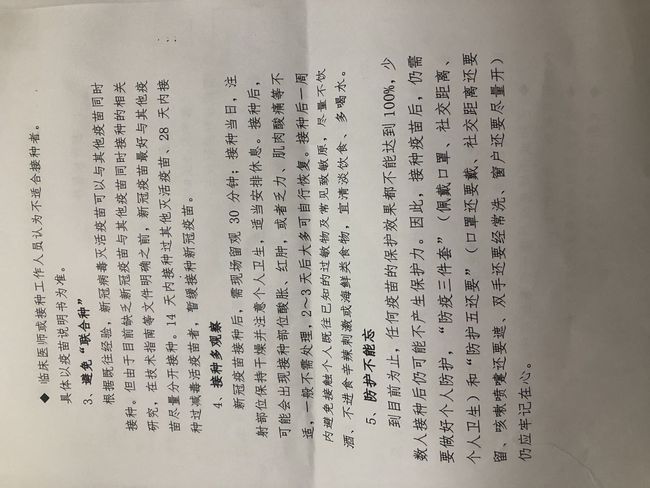 ◆ 临床医师或接种工作人员认为不适合接种者。
具体以疫苗说明书为准。
3、避免“联合种”
根据既往经验，新冠病毒灭活疫苗可以与其他疫苗同时
接种。但由于目前缺乏新冠疫苗与其他疫苗同时接种的相关
研究，在技术指南等文件明确之前，新冠疫苗最好与其他疫
苗尽量分开接种。14 天内接种过其他灭活疫苗、28 天内接
种过减毒活疫苗者，暂缓接种新冠疫苗。
4、接种多观察
新冠疫苗接种后，需现场留观 30 分钟；接种当日，注
射部位保持干燥并注意个人卫生，适当安排休息。接种后，
可能会出现接种部位酸胀、红肿，或者乏力、肌肉酸痛等不
适，一般不需处理，2～3天后大多可自行恢复。接种后一周
内避免接触个人既往已知的过敏物及常见致敏原，尽量不饮
酒、不进食辛辣刺激或海鲜类食物，宜清淡饮食、多喝水。
5、防护不能忘
到目前为止，任何疫苗的保护效果都不能达到 100%，少
数人接种后仍可能不产生保护力。因此，接种疫苗后，仍需
要做好个人防护，“防疫三件套”（佩戴口罩、社交距离、
个人卫生）和“防护五还要”（口罩还要戴、社交距离还要
留、咳嗽喷嚏还要遮、双手还要经常洗、窗户还要尽量开）
仍应牢记在心。